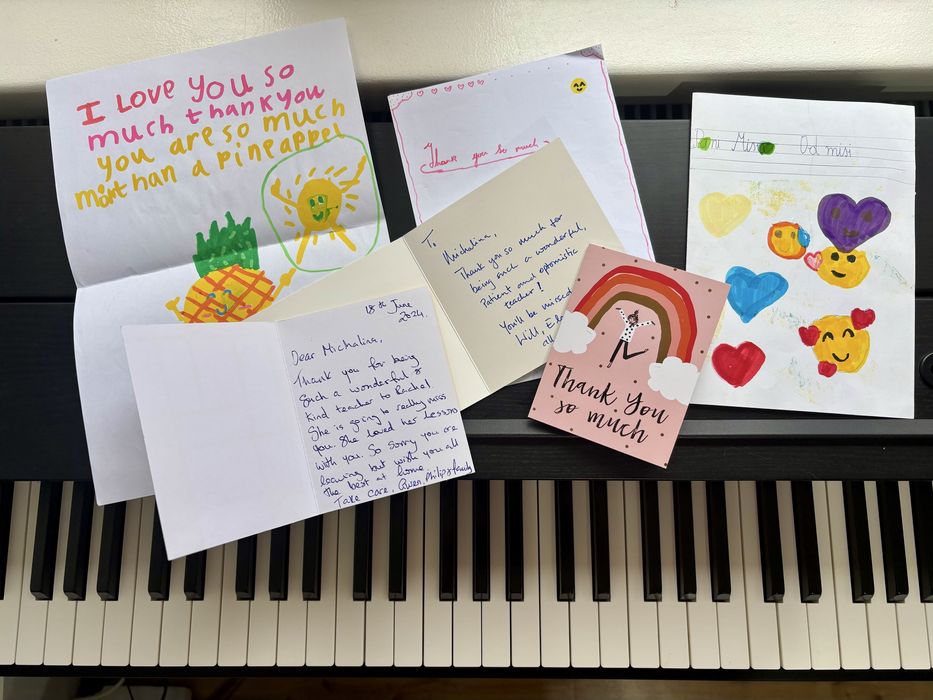 I LOVE YOU SO
much thank you
you are so much
more than a pineapple
Thank you so much
To Michalina,
Thank you so much for
being such a wonderful,
Patient and optimistic
teacher!
You'll be missed
Will,
all
18th June
2024.
Dear Michalina,
Thank you for being
such a wonderful &
kind teacher to Rachel
She is going to really miss
you. She loved her lessons
with you. So sorry you are
leaving but wish you all
the best at home.
Take care, Gwen, Philip & family
Thank You
so much
Pani Od misi